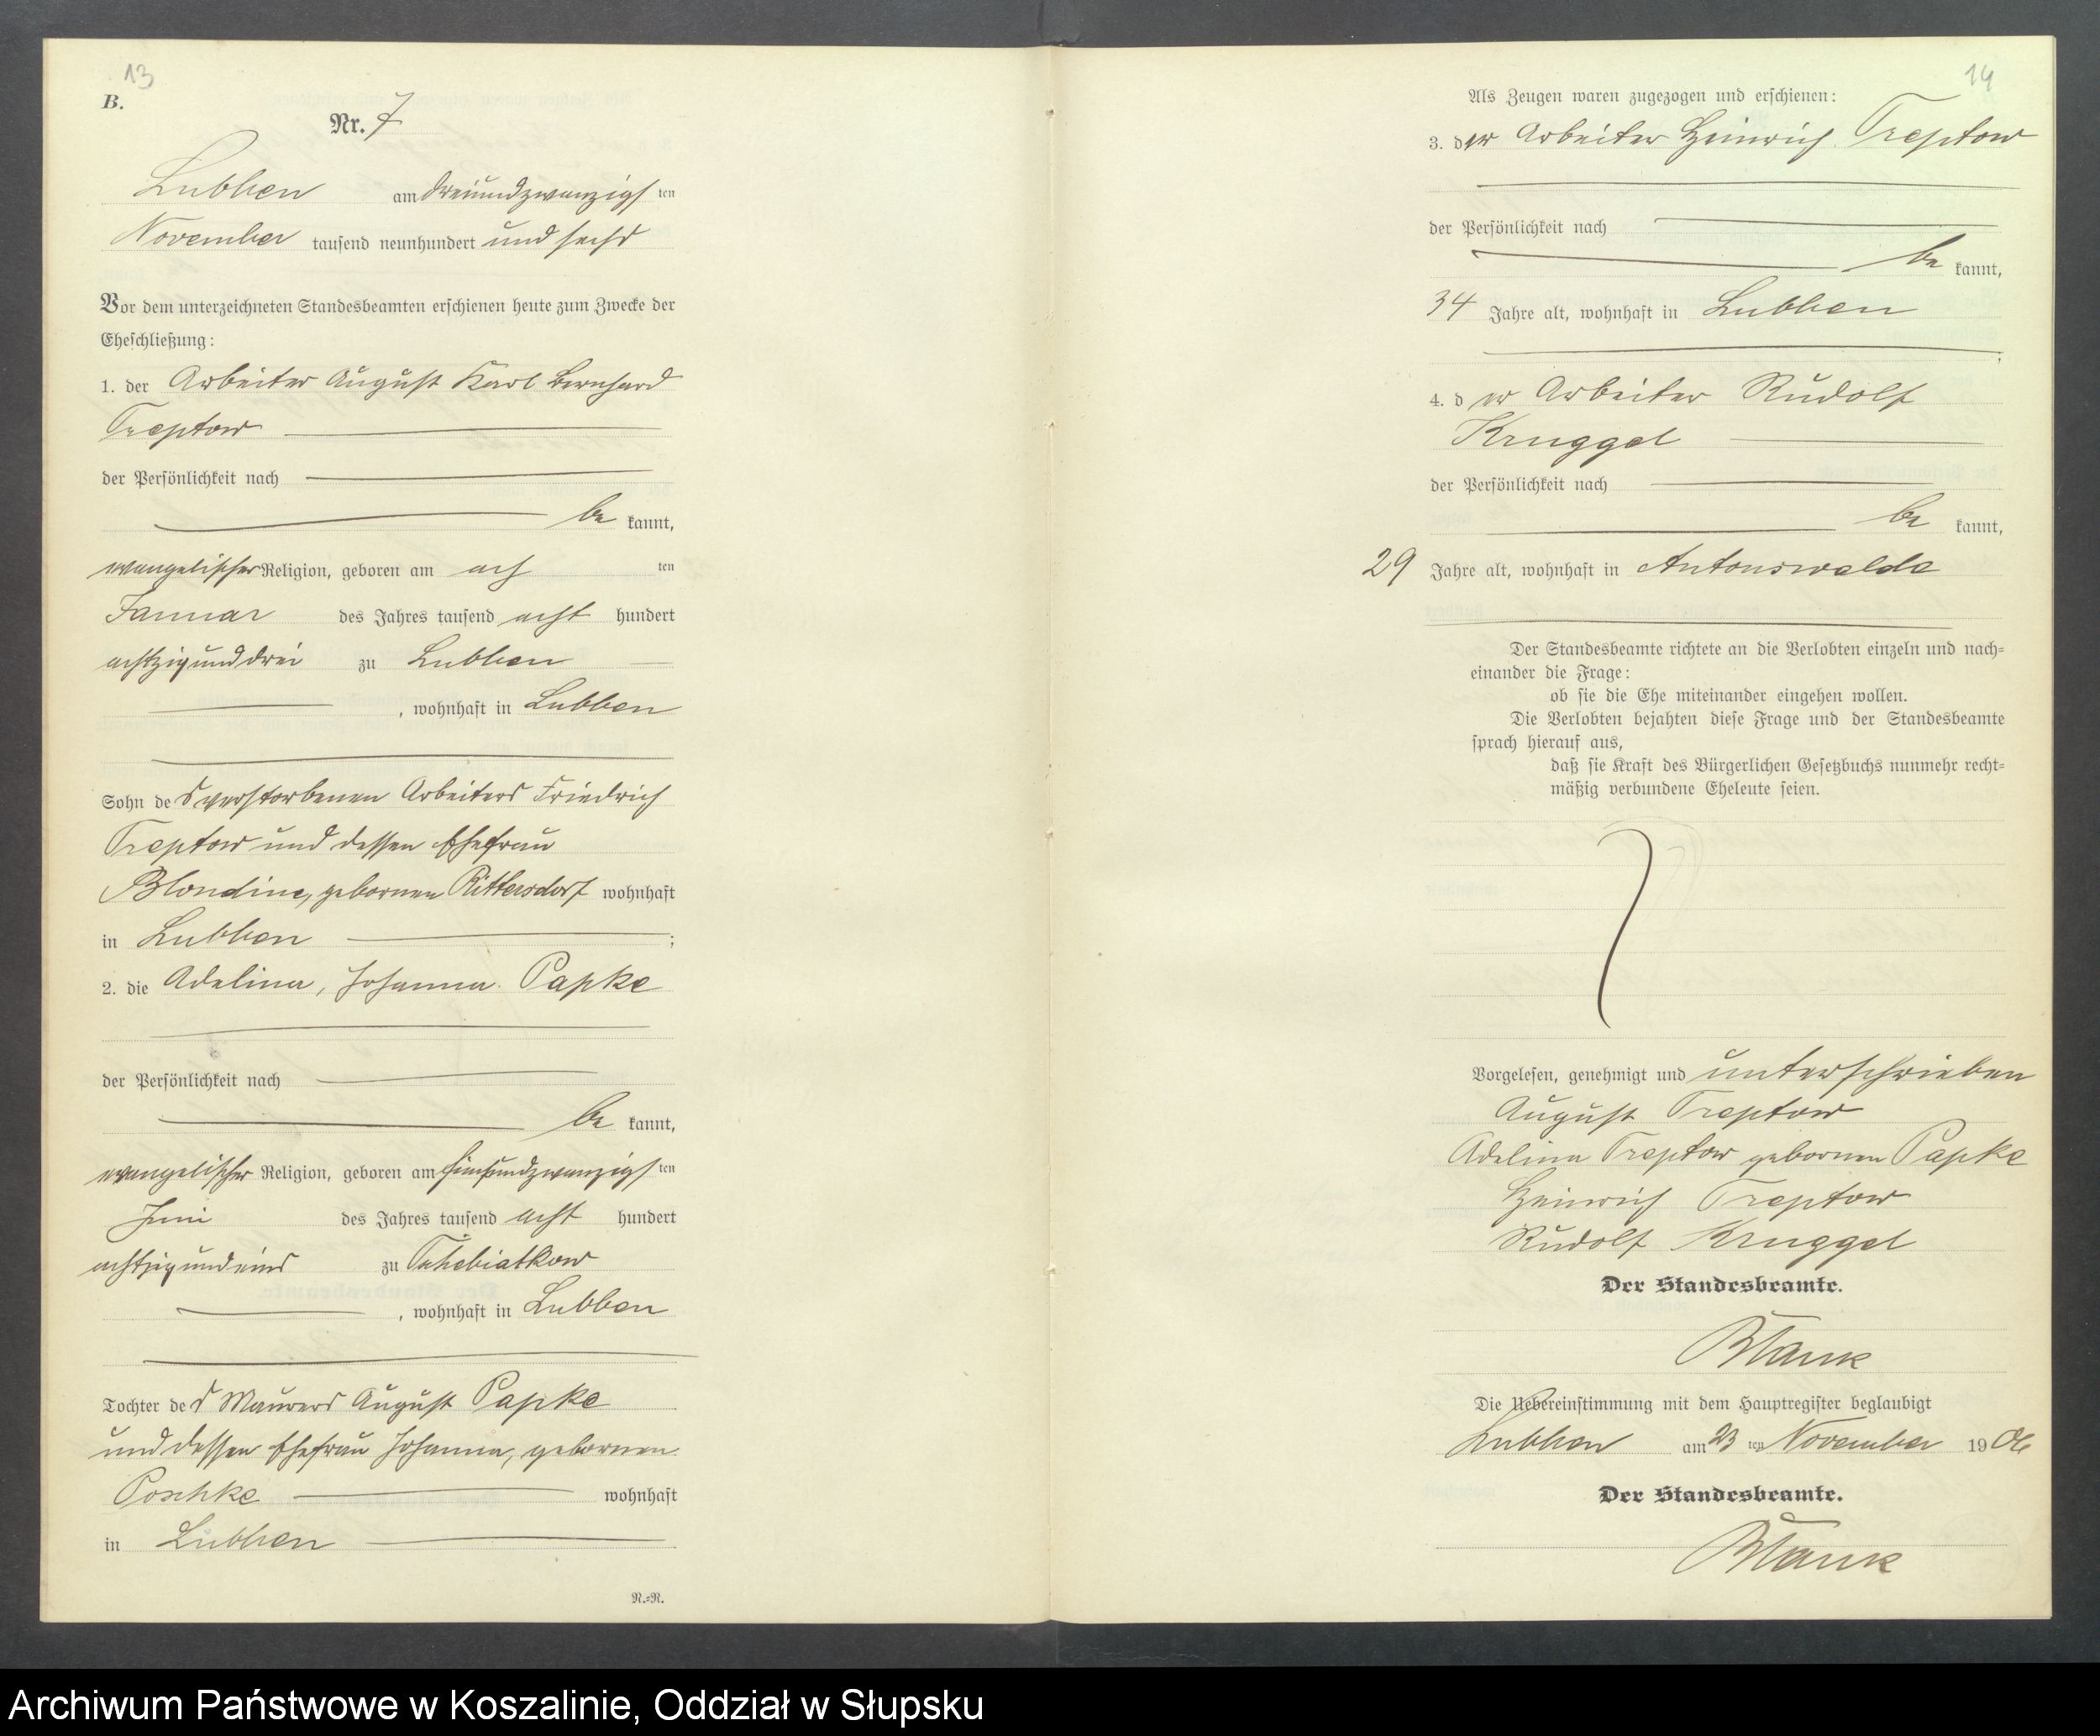 13
B.
Nr. 7
Lubben am dreiundzwanzigsten
November tausend neunhundert und sechs
Vor dem unterzeichneten Standesbeamten erschienen heute zum Zwecke der
Eheschließung:
1. der Arbeiter August Karl Bernhard
Treptow
der Persönlichkeit nach
be kannt,
evangelischer Religion, geboren am ach ten
Januar des Jahres tausend acht hundert
achtzig und drei zu Lubben
, wohnhaft in Lubben
Sohn des verstorbenen Arbeiters Friedrich
Treptow und dessen Ehefrau
Blondine, gebornen Rittersdorf wohnhaft
in Lubben ;
2. die Adeline, Johanna Papke
der Persönlichkeit nach
be kannt,
evangelischer Religion, geboren am fünfundzwanzigsten
Juni des Jahres tausend acht hundert
achtzig und eins zu Tschebiatkow
, wohnhaft in Lubben
Tochter des Maurers August Papke
und dessen Ehefrau Johanna, gebornen
Poschke wohnhaft
in Lubben
N.=N.
14
Als Zeugen waren zugezogen und erschienen:
3. der Arbeiter Heinrich Treptow
der Persönlichkeit nach
be kannt,
34 Jahre alt, wohnhaft in Lubben
;
4. der Arbeiter Rudolf
Kruggel
der Persönlichkeit nach
be kannt,
29 Jahre alt, wohnhaft in Antonswalde
Der Standesbeamte richtete an die Verlobten einzeln und nach=
einander die Frage:
ob sie die Ehe miteinander eingehen wollen.
Die Verlobten bejahten diese Frage und der Standesbeamte
sprach hierauf aus,
daß sie kraft des Bürgerlichen Gesetzbuchs nunmehr recht=
mäßig verbundene Eheleute seien.
Vorgelesen, genehmigt und unterschrieben
August Treptow
Adeline Treptow gebornen Papke
Heinrich Treptow
Rudolf Kruggel
Der Standesbeamte.
Blank
Die Uebereinstimmung mit dem Hauptregister beglaubigt
Lubben am 23 ten November 1906
Der Standesbeamte.
Blank
Archiwum Państwowe w Koszalinie, Oddział w Słupsku